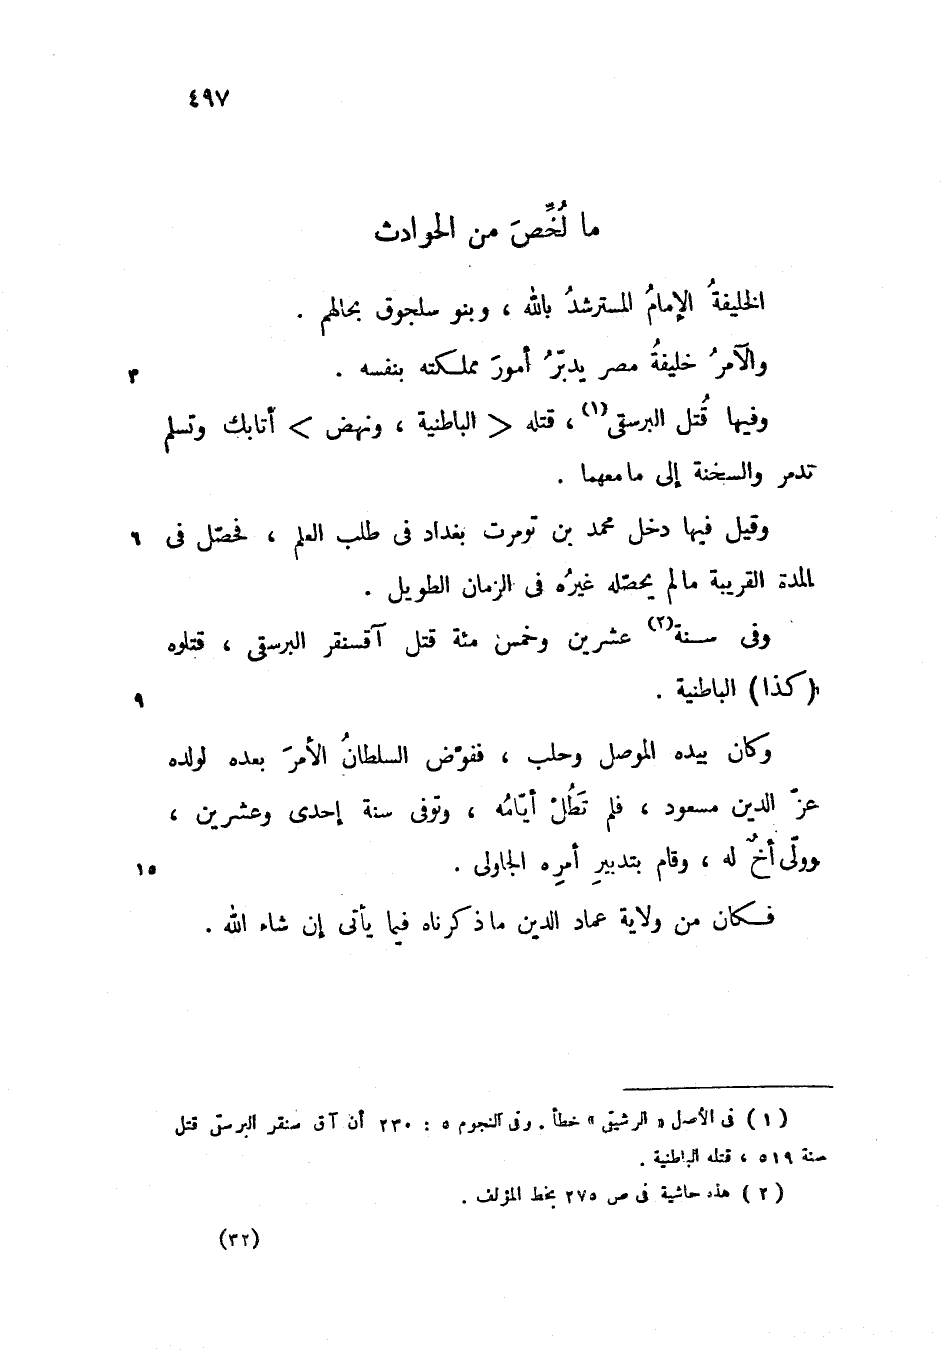 ٤٩٧
ما لُخِّصَ من الحوادث
الخليفةُ الإمامُ المسترشدُ بالله ، وبنو سلجوق بحالهم .
والآمرُ خليفةُ مصر يدبّرُ أمورَ مملكته بنفسه . ٣
وفيها قُتل البرسقى(١) ، قتله < الباطنية ، ونهض > أتابك وتسلم
تدمر والسخنة إلى ما معهما .
وقيل فيها دخل محمد بن تومرت بغداد فى طلب العلم ، فحصّل فى ٦
المدة القريبة مالم يحصّله غيرُه فى الزمان الطويل .
وفى سنة(٢) عشرين وخمس مئة قتل آقسنقر البرسقى ، قتلوه
(كذا) الباطنية . ٩
وكان بيده الموصل وحلب ، ففوّض السلطانُ الأمرَ بعده لولده
عزّ الدين مسعود ، فلم تَطُلْ أيّامُه ، وتوفى سنة إحدى وعشرين ،
وولّى أخٌ له ، وقام بتدبيرِ أمرِه الجاولى . ١٥
فكان من ولاية عماد الدين ما ذكرناه فيما يأتى إن شاء الله .
(١) فى الأصل « الرشيقى » خطأ . وفى النجوم ٥ : ٢٣٠ أن آق سنقر البرسقى قتل
سنة ٥١٩ ، قتله الباطنية .
(٢) هذه حاشية فى ص ٢٧٥ بخط المؤلف .
(٣٢)